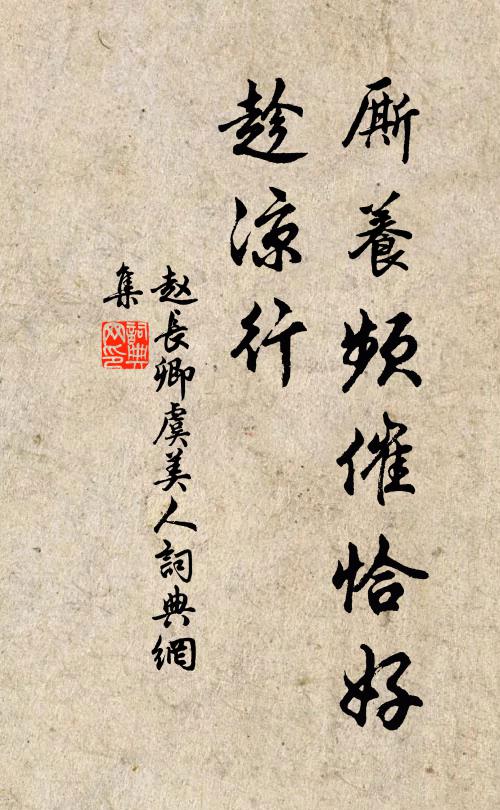 厮養頻催恰好
趁涼行
赵長卿虞美人詞典網
集
詞典网印